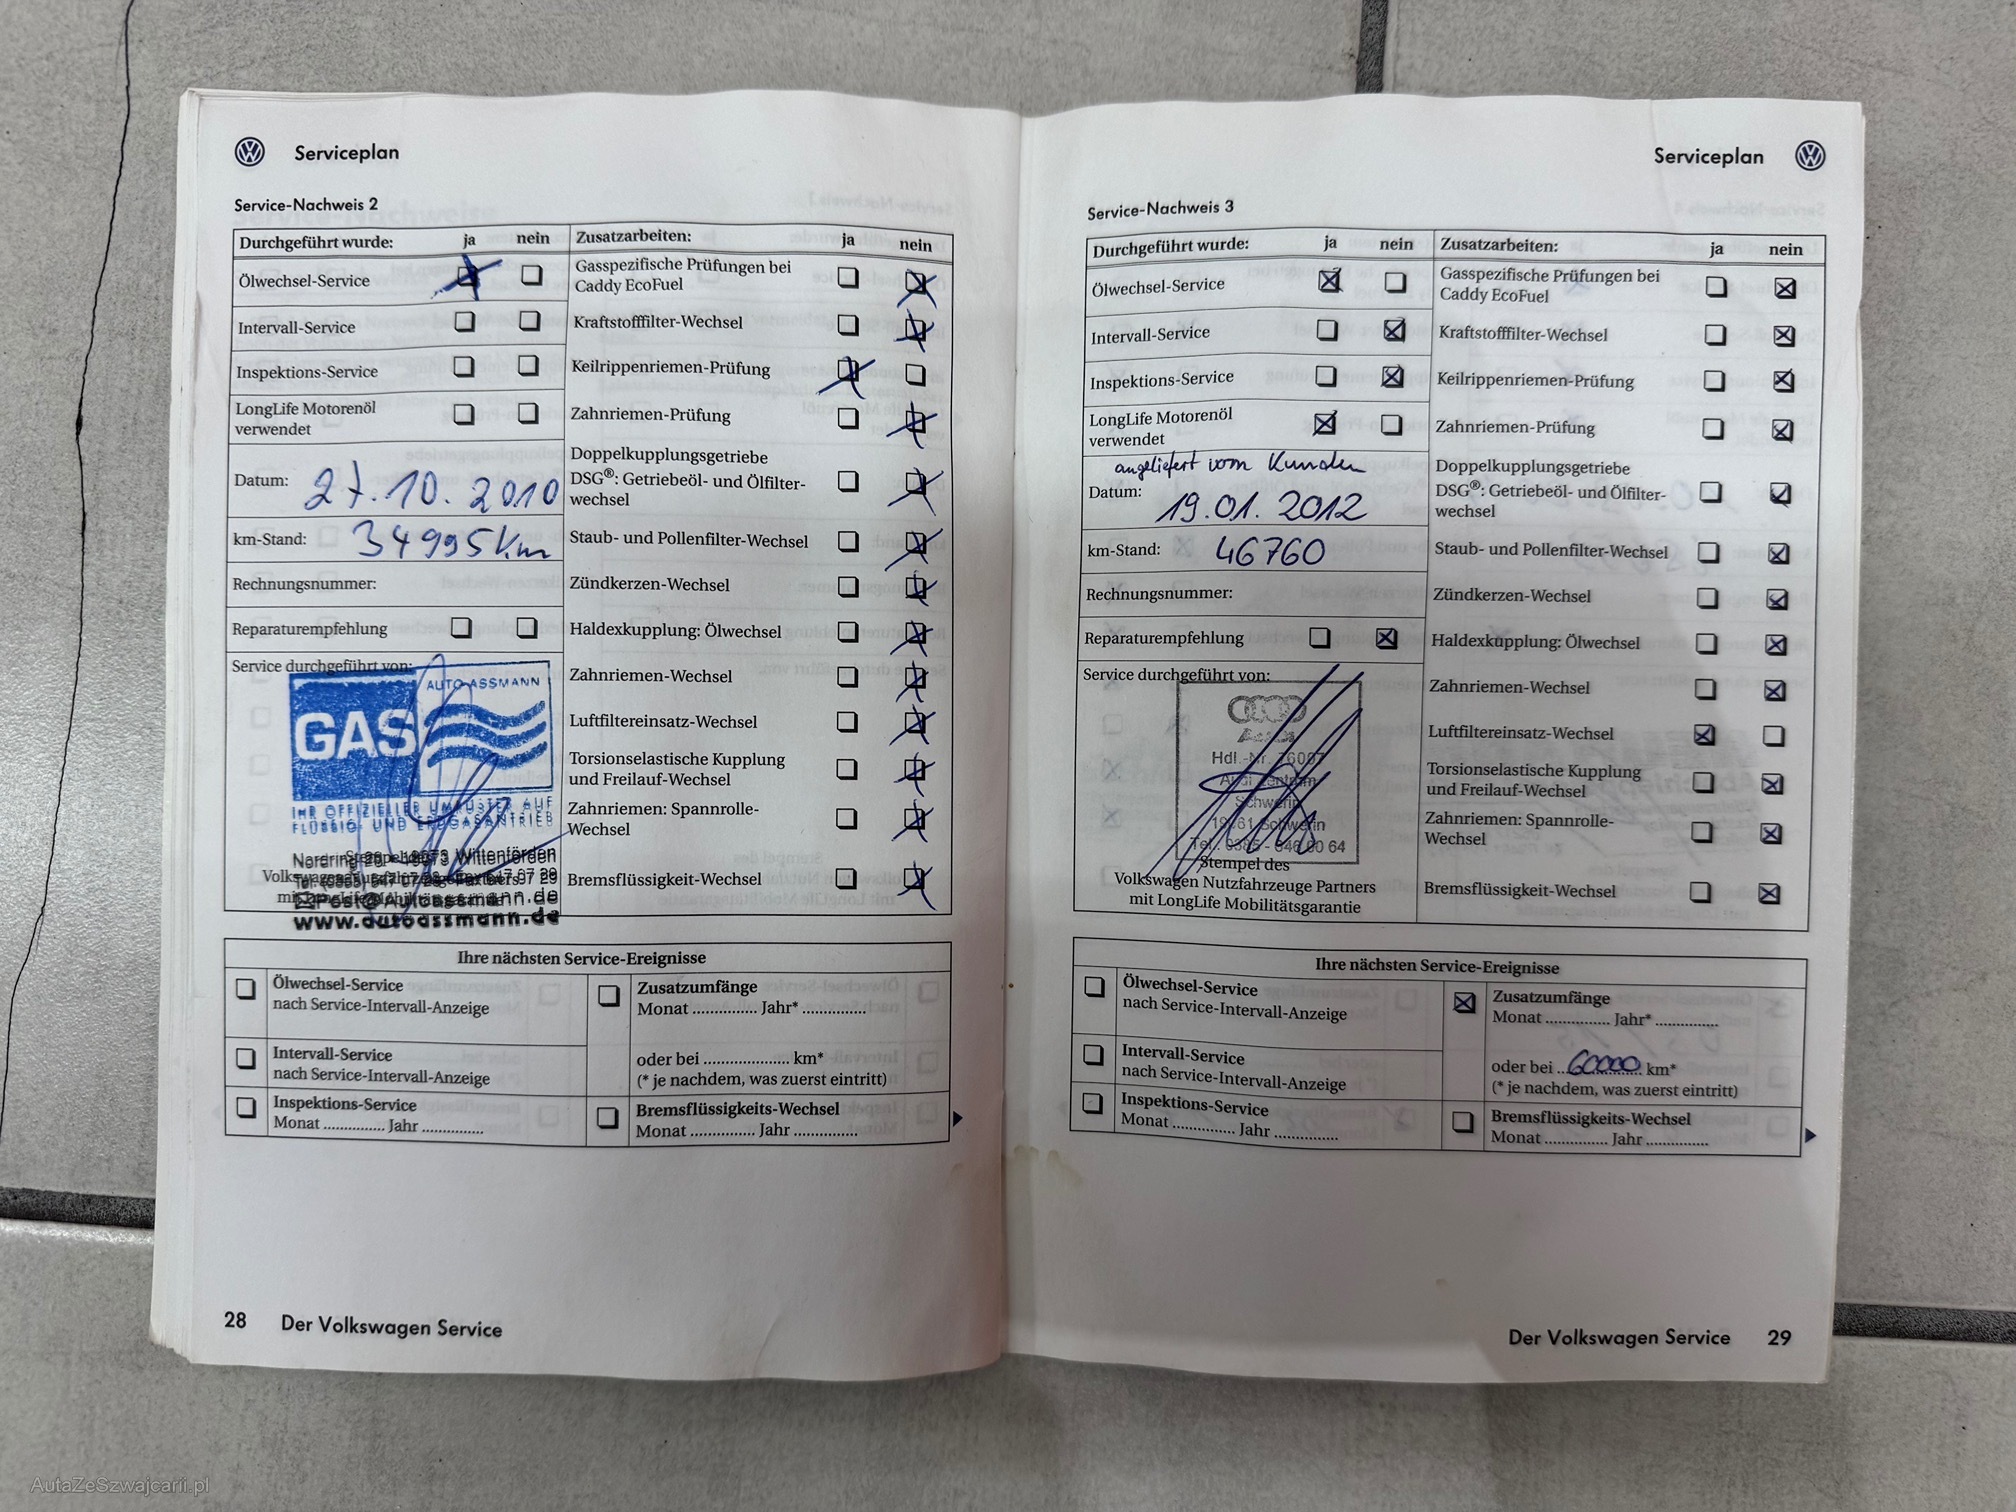 Serviceplan
Service-Nachweis 2
Durchgeführt wurde: ja nein
Ölwechsel-Service
Intervall-Service
Inspektions-Service
LongLife Motorenöl
verwendet
Datum: 27.10.2010
km-Stand: 34995 km
Rechnungsnummer:
Reparaturempfehlung
Service durchgeführt von:
AUTO ASSMANN
GAS
IHR OFFIZIELLER UMRÜSTER AUF
FLÜSSIG- UND ERDGASANTRIEB
Nordring 19073 Wittenförden
www.autoassmann.de
Zusatzarbeiten: ja nein
Gasspezifische Prüfungen bei
Caddy EcoFuel
Kraftstofffilter-Wechsel
Keilrippenriemen-Prüfung
Zahnriemen-Prüfung
Doppelkupplungsgetriebe
DSG®: Getriebeöl- und Ölfilter-
wechsel
Staub- und Pollenfilter-Wechsel
Zündkerzen-Wechsel
Haldexkupplung: Ölwechsel
Zahnriemen-Wechsel
Luftfiltereinsatz-Wechsel
Torsionselastische Kupplung
und Freilauf-Wechsel
Zahnriemen: Spannrolle-
Wechsel
Bremsflüssigkeit-Wechsel
Ihre nächsten Service-Ereignisse
Ölwechsel-Service
nach Service-Intervall-Anzeige
Intervall-Service
nach Service-Intervall-Anzeige
Inspektions-Service
Monat ............... Jahr ...............
Zusatzumfänge
Monat ............... Jahr* ...............
oder bei .................... km*
(* je nachdem, was zuerst eintritt)
Bremsflüssigkeits-Wechsel
Monat ............... Jahr ...............
28 Der Volkswagen Service
Serviceplan
Service-Nachweis 3
Durchgeführt wurde: ja nein
Ölwechsel-Service
Intervall-Service
Inspektions-Service
LongLife Motorenöl
verwendet
angeliefert vom Kunden
Datum: 19.01.2012
km-Stand: 46760
Rechnungsnummer:
Reparaturempfehlung
Service durchgeführt von:
Audi
Hdl.-Nr. 76007
Audi Zentrum
Schwerin
19061 Schwerin
Stempel des
Volkswagen Nutzfahrzeuge Partners
mit LongLife Mobilitätsgarantie
Zusatzarbeiten: ja nein
Gasspezifische Prüfungen bei
Caddy EcoFuel
Kraftstofffilter-Wechsel
Keilrippenriemen-Prüfung
Zahnriemen-Prüfung
Doppelkupplungsgetriebe
DSG®: Getriebeöl- und Ölfilter-
wechsel
Staub- und Pollenfilter-Wechsel
Zündkerzen-Wechsel
Haldexkupplung: Ölwechsel
Zahnriemen-Wechsel
Luftfiltereinsatz-Wechsel
Torsionselastische Kupplung
und Freilauf-Wechsel
Zahnriemen: Spannrolle-
Wechsel
Bremsflüssigkeit-Wechsel
Ihre nächsten Service-Ereignisse
Ölwechsel-Service
nach Service-Intervall-Anzeige
Intervall-Service
nach Service-Intervall-Anzeige
Inspektions-Service
Monat ............... Jahr ...............
Zusatzumfänge
Monat ............... Jahr* ...............
oder bei 60000 km*
(* je nachdem, was zuerst eintritt)
Bremsflüssigkeits-Wechsel
Monat ............... Jahr ...............
Der Volkswagen Service 29
AutaZeSzwajcarii.pl